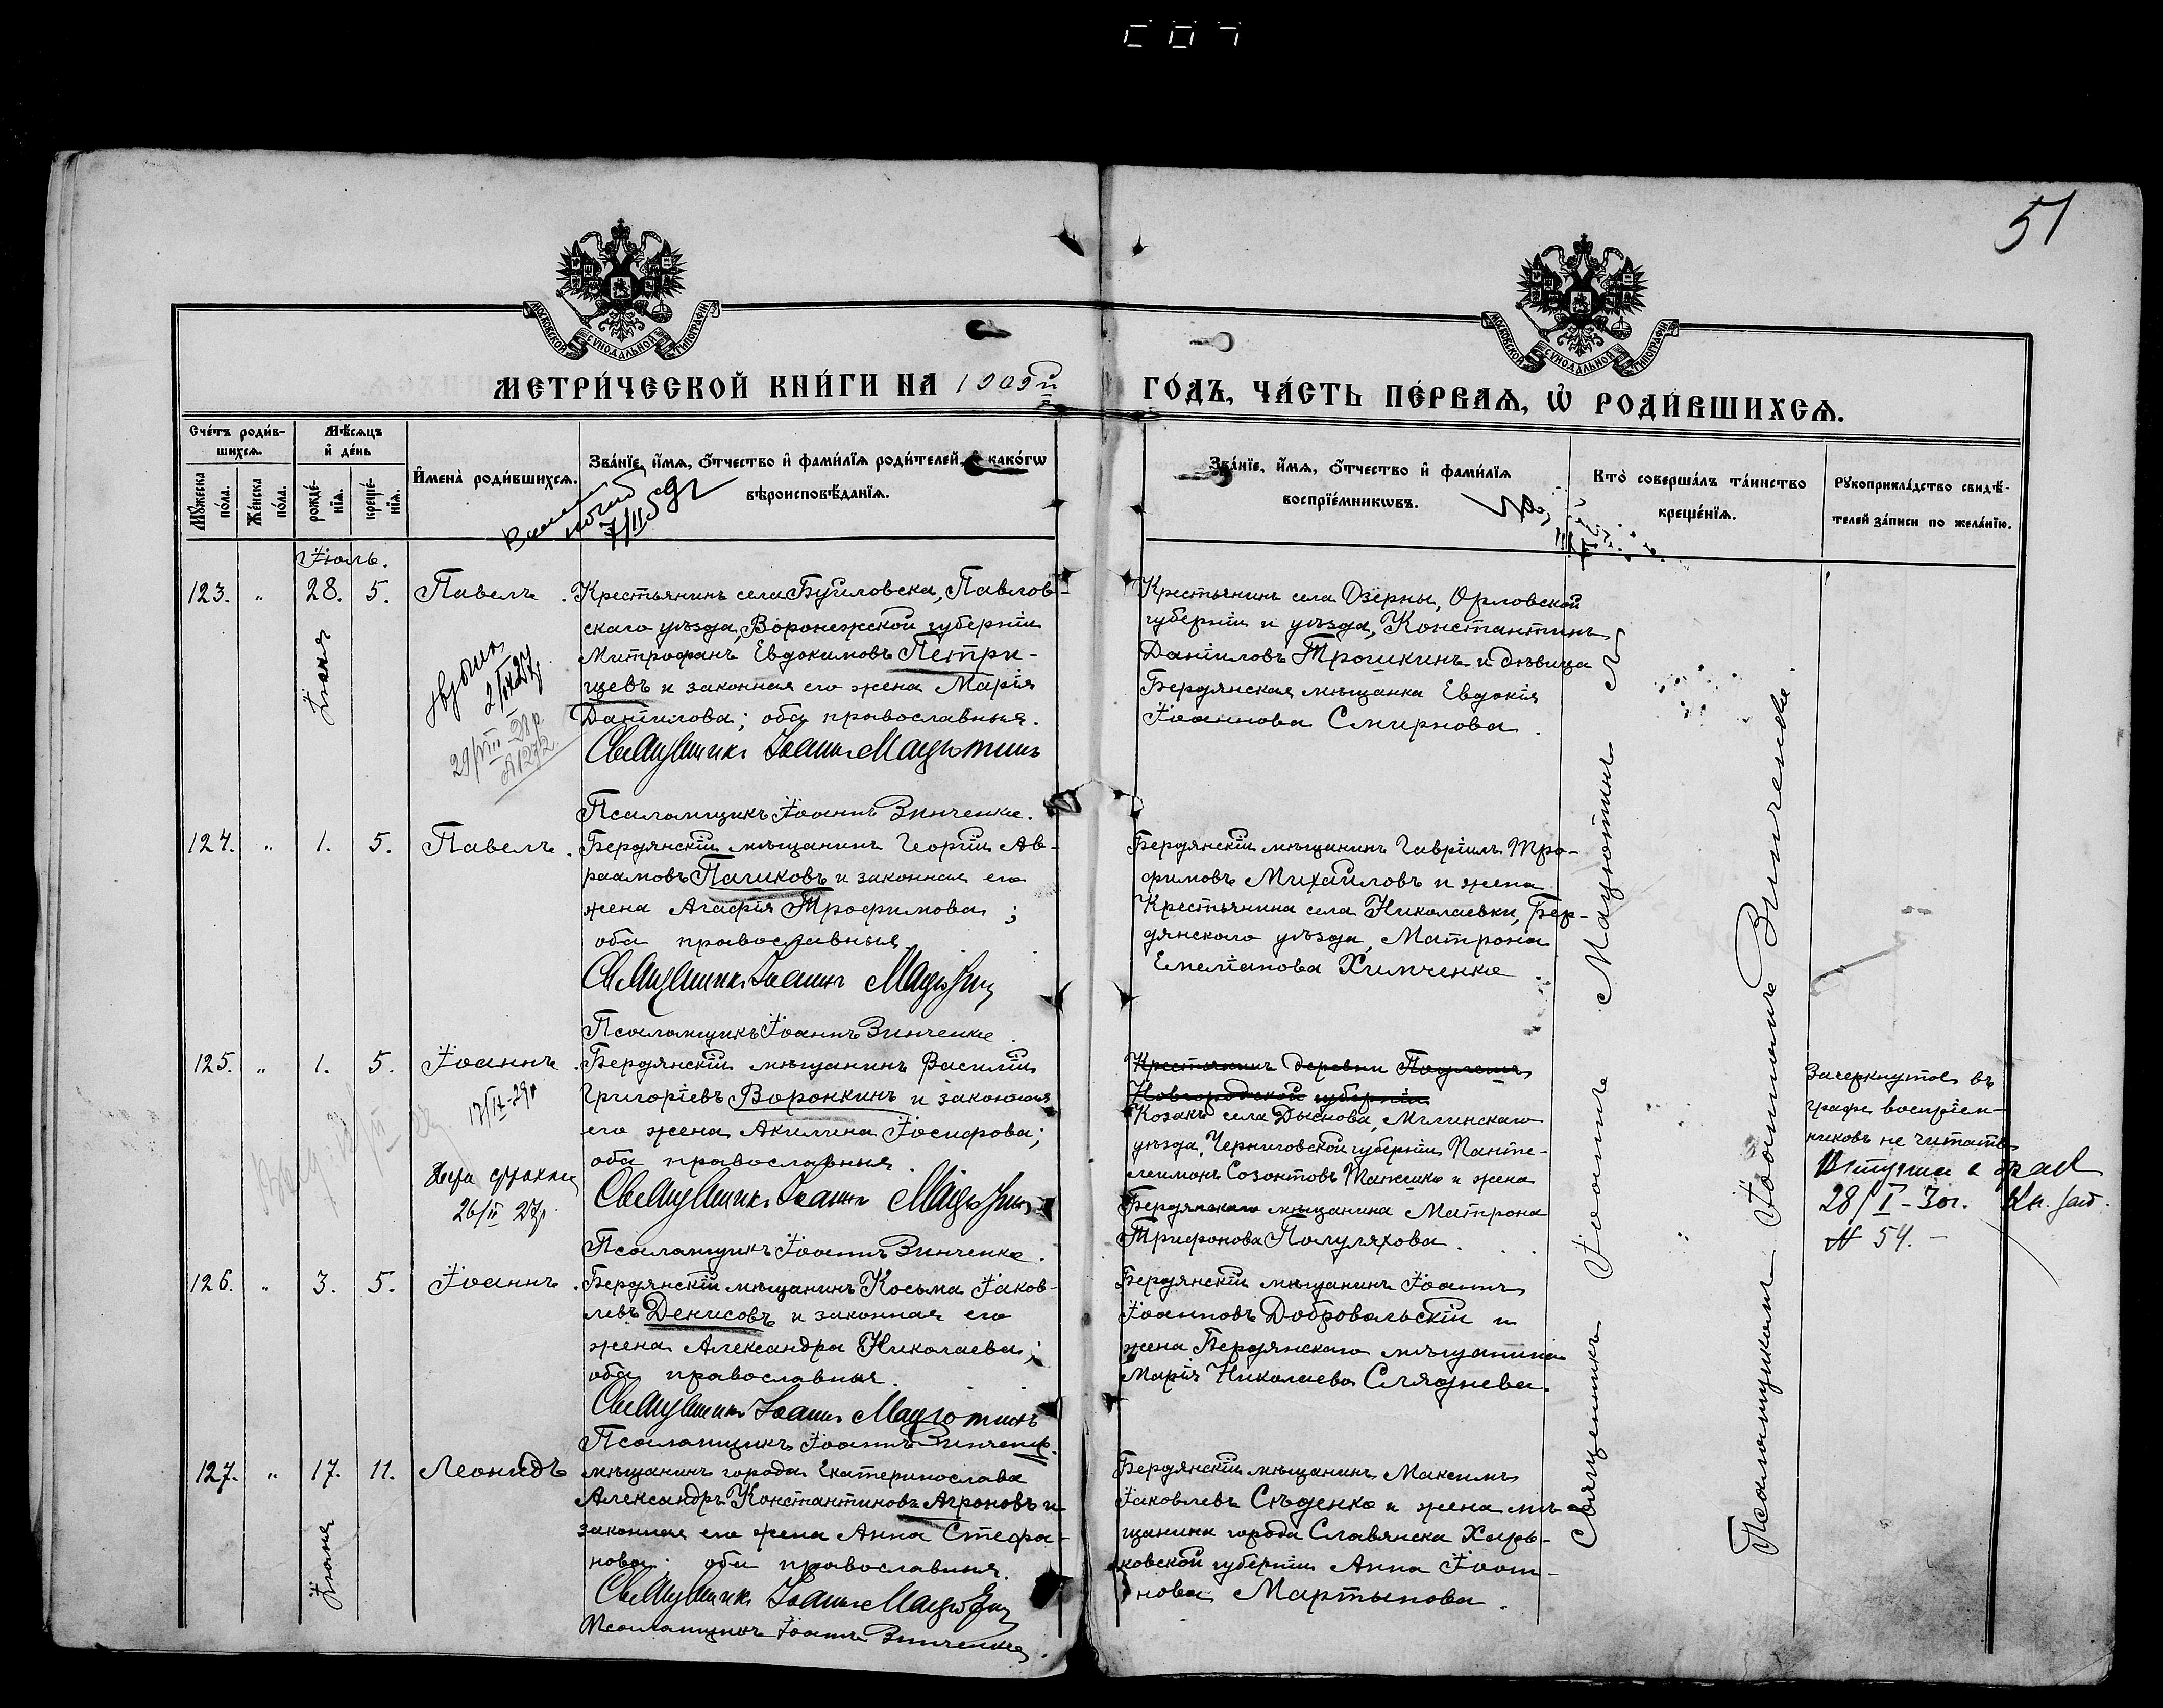 51
МОСКОВСКОЙ СУНОДАЛЬНОЙ ТИПОГРАФІИ
МОСКОВСКОЙ СУНОДАЛЬНОЙ ТИПОГРАФІИ
МЕТРИ́ЧЕСКОЙ КНИ́ГИ НА 1909й
ГО́ДЪ, ЧА́СТЬ ПЕ́РВАѦ, Ѡ҆ РОДИ́ВШИХСѦ.
Сче́тъ роди́в-
шихсѧ.
Мꙋ́жеска
по́ла.
Же́нска
по́ла.
Мѣ́сѧцъ
и҆ де́нь
рожде́-
нїѧ.
креще́-
нїѧ.
И҆мена̀ роди́вшихсѧ.
Зва́нїе, и҆́мѧ, ѻ҆́тчество и҆ фами́лїѧ роди́телей, и҆ како́гѡ
вѣроисповѣ́данїѧ.
7/II
Зва́нїе, и҆́мѧ, ѻ҆́тчество и҆ фами́лїѧ
воспрїе́мникѡвъ.
Кто̀ соверша́лъ та́инство
креще́нїѧ.
Рꙋкоприкла́дство свидѣ́-
телей за́писи по жела́нїю.
Іюль.
123. " 28. 5. Павелъ.
Іюня
2/IX 27
29/VIII 28 р.
Крестьянинъ села Буйловска, Павлов-
скаго уѣзда, Воронежской губерніи
Митрофанъ Евдокимовъ Петри-
щевъ и законная его жена Марія
Даніилова; оба православные.
Священникъ Іоаннъ Мацютинъ
Псаломщикъ Іоаннъ Зинченко.
Крестьянинъ села Дзерны, Орловской
губерніи и уѣзда, Константинъ
Даніиловъ Трошкинъ и дѣвица
Бердянская мѣщанка Евдокія
Іоаннова Смирнова.
124. " 1. 5. Павелъ.
Бердянскій мѣщанинъ Георгій Ав-
раамовъ Пашковъ и законная его
жена Агафія Трофимова;
оба православные
Священникъ Іоаннъ Мацютинъ
Псаломщикъ Іоаннъ Зинченко
Бердянскій мѣщанинъ Гавріилъ Тро-
фимовъ Михайловъ и жена
Крестьянина села Николаевки, Бер-
дянскаго уѣзда, Матрона
Емеліанова Химченко.
125. " 1. 5. Іоаннъ.
17/IX-29р
26/II 27р
Бердянскій мѣщанинъ Василій
Григоріевъ Воронкинъ и законная
его жена Акилина Іосифова;
оба православные.
Священникъ Іоаннъ Мацютинъ
Псаломщикъ Іоаннъ Зинченко.
Крестьянинъ деревни
Новгородской губерніи
Козакъ села Дыснова, Мглинскаго
уѣзда, Черниговской губерніи Панте-
леимонъ Созонтовъ и жена
Бердянскаго мѣщанина Матрона
Трифонова Полуляхова.
Зачеркнутое въ
графѣ воспріем-
никовъ не читать
28/I-30г.
N 54.-
126. " 3. 5. Іоаннъ.
Бердянскій мѣщанинъ Косьма Іаков-
левъ Денисовъ и законная его
жена Александра Николаева;
оба православные.
Священникъ Іоаннъ Мацютинъ
Псаломщикъ Іоаннъ Зинченко.
Бердянскій мѣщанинъ Іоаннъ
Іоанновъ Добровольскій и
жена Бердянскаго мѣщанина
Марія Николаева Сляднева.
127. " 17. 11. Леонидъ
Іюня
мѣщанинъ города Екатеринослава
Александръ Константиновъ Агроновъ и
законная его жена Анна Стефа-
нова; оба православные.
Священникъ Іоаннъ Мацютинъ
Псаломщикъ Іоаннъ Зинченко.
Бердянскій мѣщанинъ Максимъ
Іаковлевъ Сѣденко и жена мѣ-
щанина города Славянска Харь-
ковской губерніи Анна Іоан-
нова Мартынова.
Священникъ Іоаннъ Мацютинъ
Псаломщикъ Іоаннъ Зинченко.